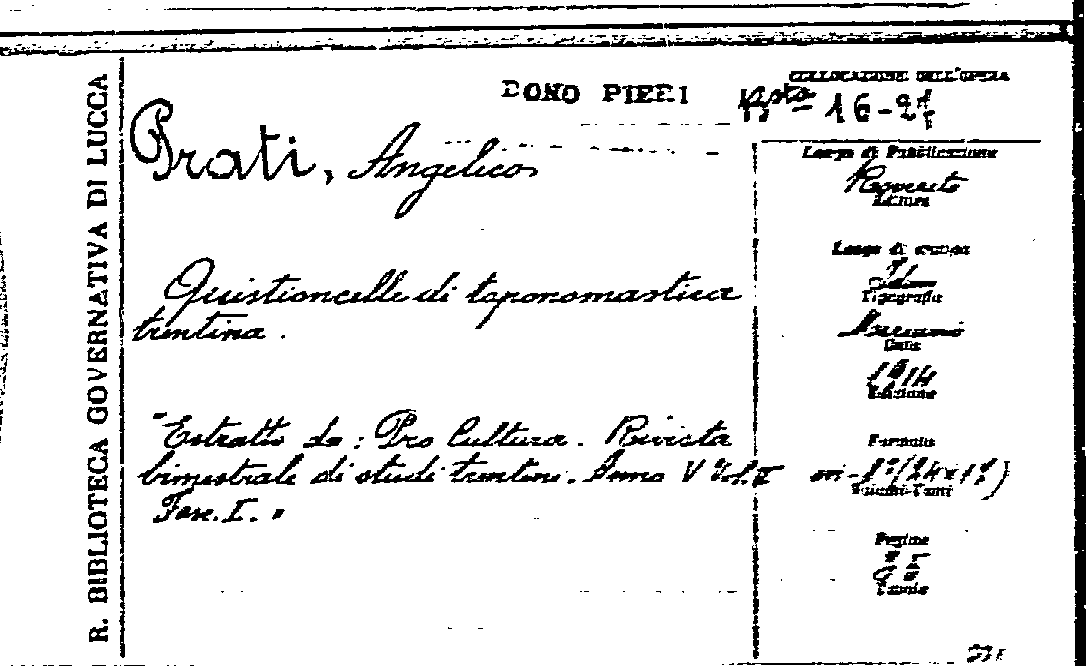 R. BIBLIOTECA GOVERNATIVA DI LUCCA
DONO PIERI
COLLOCAZIONE DELL'OPERA
Bsta 16-2
Prati, Angelico
Luogo di Pubblicazione
Rovereto
Editore
Quistioncelle di toponomastica
trentina.
Luogo di stampa
Id.
Tipografia
Data
1914
Edizione
"Estratto da: Pro Cultura. Rivista
bimestrale di studi trentini. Anno V Vol. II
Fasc. I."
Formato
in-8º (24x17)
Volumi-Tomi
Pagine
Tavole